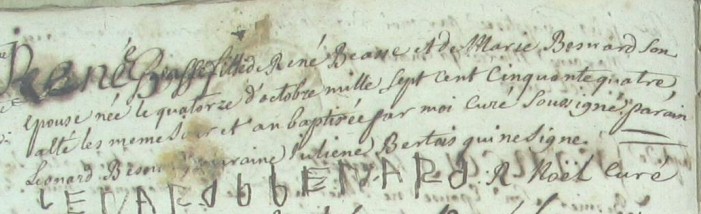 Renée Beasse fille de René Beasse et de Marie Besnard son
Epouse née le quatorze d'octobre mille sept cent cinquante quatre
a été les meme jour et an baptisée par moi curé soussigné, parain
Leonard Besnard maraine Juliene Bertois qui ne signe.
LENARD bbENARd R. Noël Curé